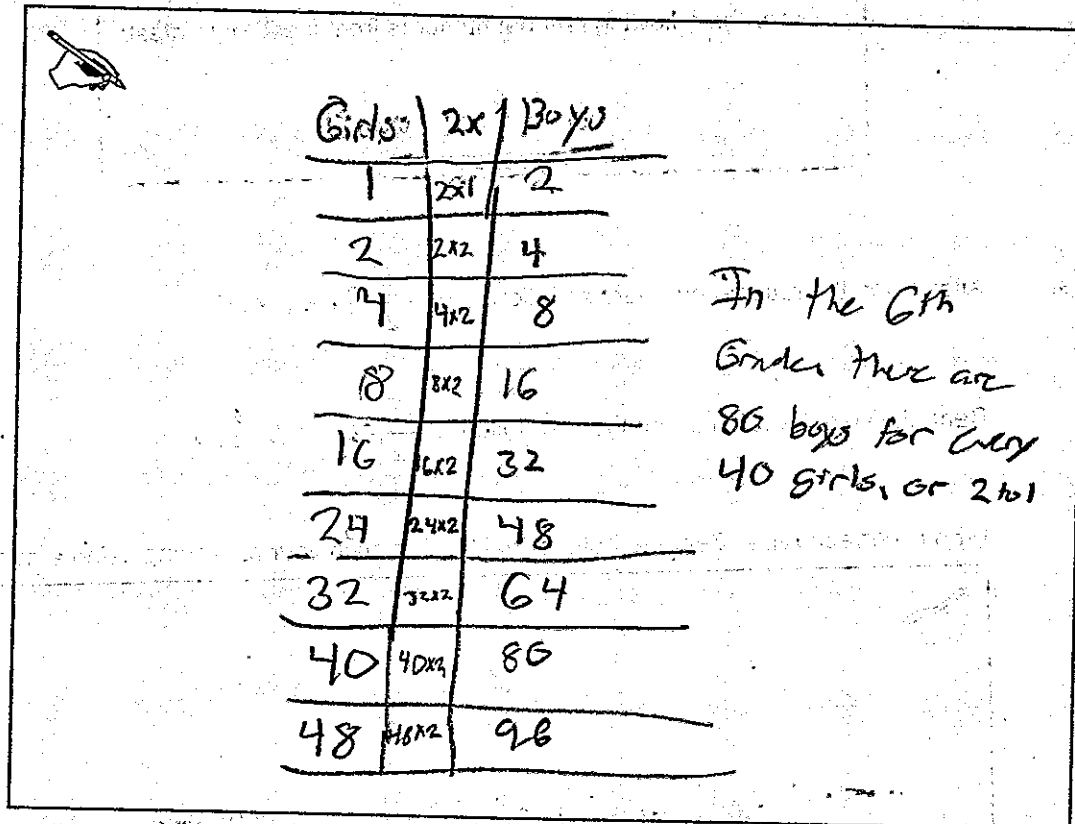 Girls 2x Boys
1 2x1 2
2 2x2 4
4 4x2 8
8 8x2 16
16 16x2 32
24 24x2 48
32 32x2 64
40 40x2 80
48 48x2 96
In the 6th
Grade, there are
80 boys for every
40 girls, or 2 to 1